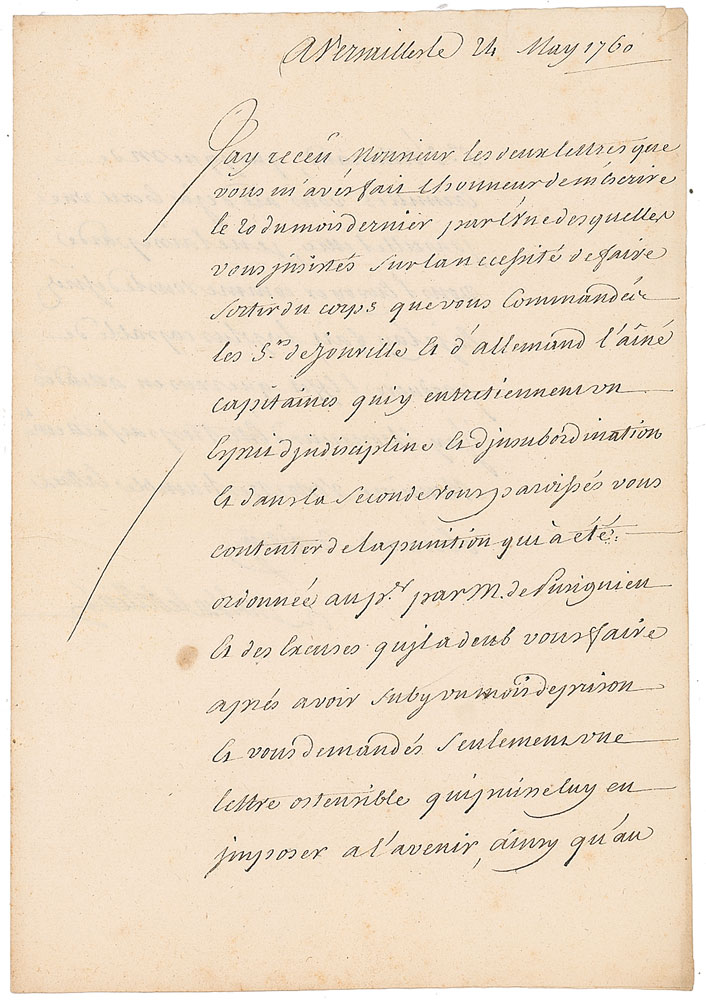 A Versailles le 24 May 1760
J'ay receu Monsieur les deux lettres que
vous m'avés fait l'honneur de m'Ecrire
le 20 du mois dernier par l'Une desquelles
vous jnsistés sur la necessité de faire
sortir du corps que vous Commandés
les Srs. de Jonville Et d'allemand l'aîné
capitaines qui y entretiennent un
Esprit d'jndiscipline Et d'jnsubordination
Et dans la seconde vous paroissés vous
contenter de la punition qui à été
ordonnée au pr. par M. de Puisignieu
Et des Excuses qu'jl a deub vous faire
aprés avoir suby un mois de prison
Et vous demandés seulement une
lettre ostensible qui puisse luy en
jmposer a l'avenir, ainsy qu'au